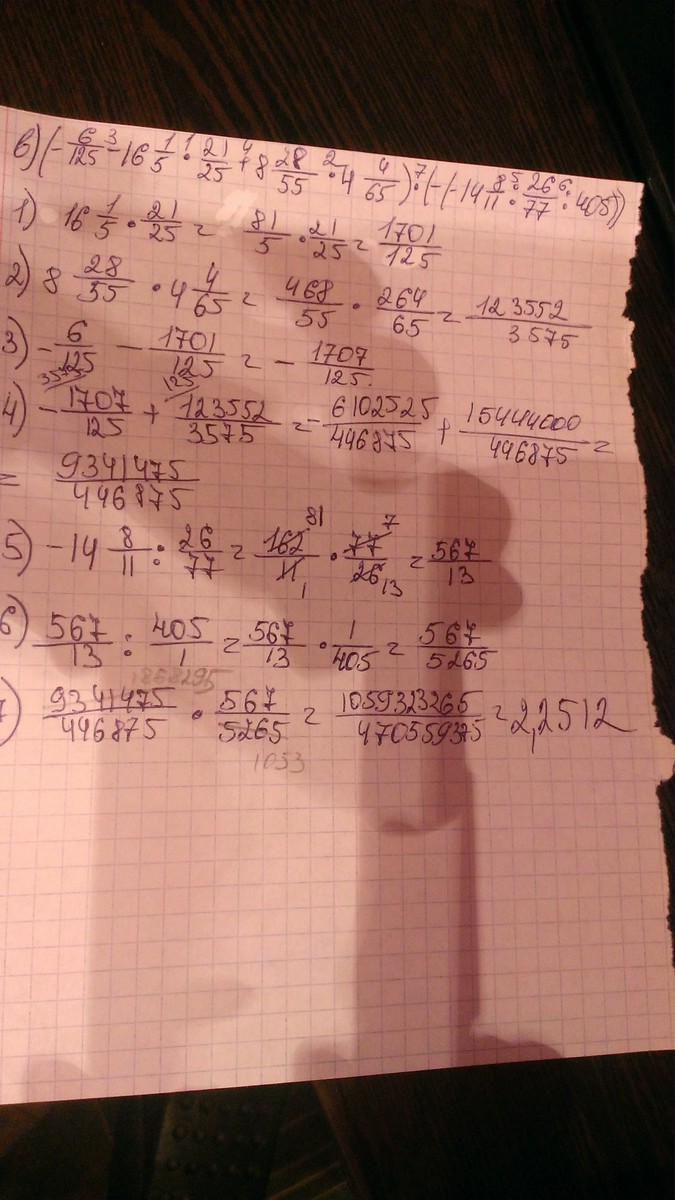 в) (-6/125 - 16 1/5 · 21/25 + 8 28/55 · 4 4/65) · (-(-14 8/11 : 26/77 : 405))
1) 16 1/5 · 21/25 = 81/5 · 21/25 = 1701/125
2) 8 28/55 · 4 4/65 = 468/55 · 264/65 = 123552/3575
3) -6/125 - 1701/125 = -1707/125
4) -1707/125 + 123552/3575 = -6102525/446875 + 15444000/446875 =
= 9341475/446875
5) -14 8/11 : 26/77 = 162/11 · 77/26 = 567/13
6) 567/13 : 405/1 = 567/13 · 1/405 = 567/5265
7) 9341475/446875 · 567/5265 = 1059323265/470559375 = 2,2512